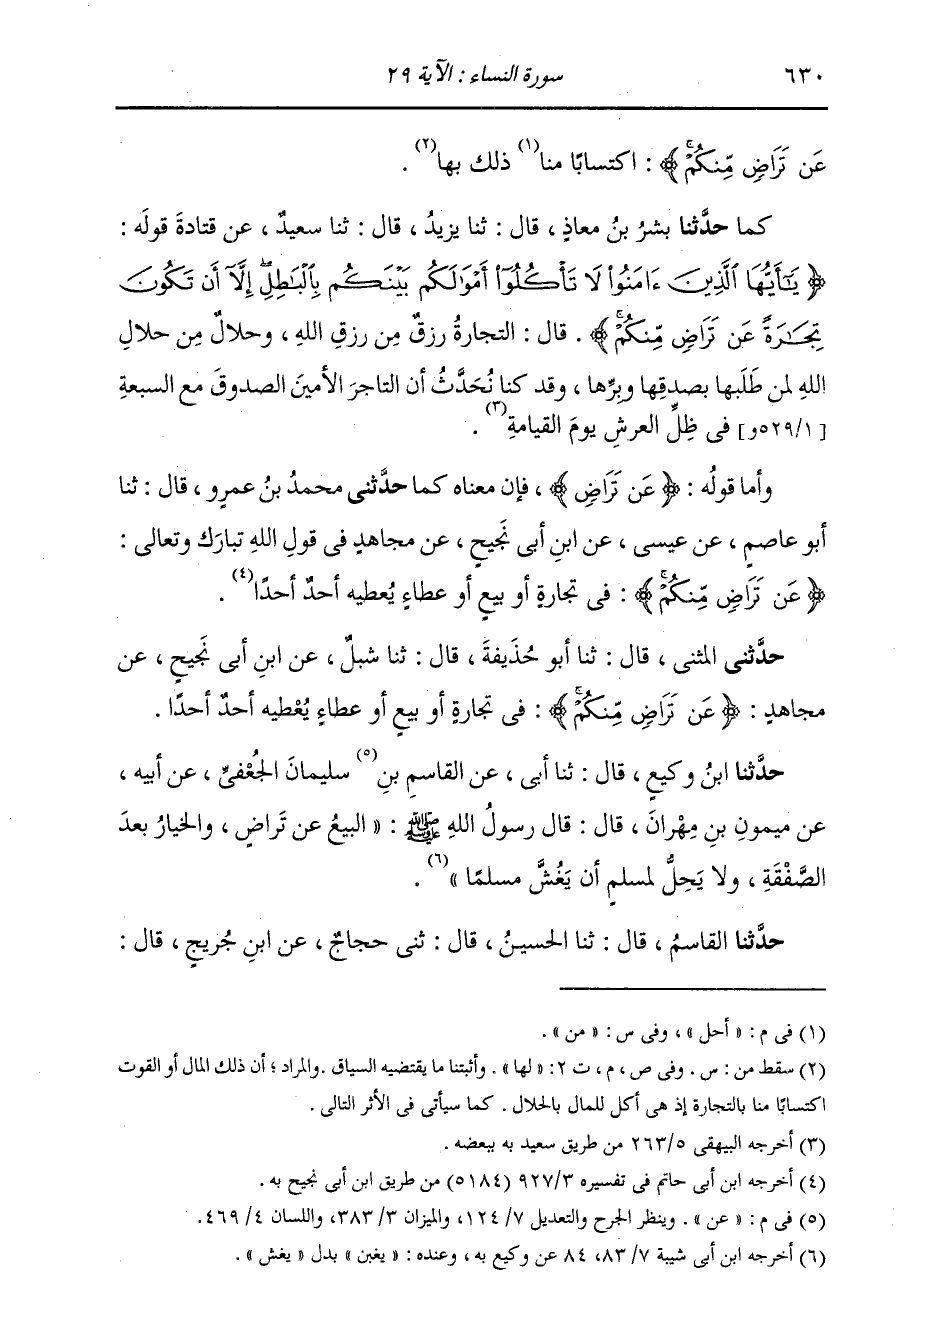 ٦٣٠
سورة النساء : الآية ٢٩
عَن تَرَاضٍ مِّنكُمْۚ ﴾ : اكتسابًا منا(١) ذلك بها(٢) .
كما حدَّثنا بشرُ بنُ معاذٍ ، قال : ثنا يزيدُ ، قال : ثنا سعيدٌ ، عن قتادةَ قولَه :
﴿ يَٰٓأَيُّهَا ٱلَّذِينَ ءَامَنُوا۟ لَا تَأْكُلُوٓا۟ أَمْوَٰلَكُم بَيْنَكُم بِٱلْبَٰطِلِ إِلَّآ أَن تَكُونَ
تِجَٰرَةً عَن تَرَاضٍ مِّنكُمْۚ ﴾ . قال : التجارةُ رزقٌ مِن رزقِ اللهِ ، وحلالٌ مِن حلالِ
اللهِ لمن طَلَبها بصدقِها وبِرِّها ، وقد كنا نُحَدَّثُ أن التاجرَ الأمينَ الصدوقَ مع السبعةِ
[ ٥٢٩/١و ] فى ظِلِّ العرشِ يومَ القيامةِ(٣) .
وأما قولُه : ﴿ عَن تَرَاضٍ ﴾ ، فإن معناه كما حدَّثنى محمدُ بنُ عمرٍو ، قال : ثنا
أبو عاصمٍ ، عن عيسى ، عن ابنِ أبى نَجيحٍ ، عن مجاهدٍ فى قولِ اللهِ تبارَك وتعالى :
﴿ عَن تَرَاضٍ مِّنكُمْۚ ﴾ : فى تجارةٍ أو بيعٍ أو عطاءٍ يُعطيه أحدٌ أحدًا(٤) .
حدَّثنى المثنى ، قال : ثنا أبو حُذَيفةَ ، قال : ثنا شبلٌ ، عن ابنِ أبى نَجيحٍ ، عن
مجاهدٍ : ﴿ عَن تَرَاضٍ مِّنكُمْۚ ﴾ : فى تجارةٍ أو بيعٍ أو عطاءٍ يُعْطيه أحدٌ أحدًا .
حدَّثنا ابنُ وكيعٍ ، قال : ثنا أبى ، عن القاسمِ بنِ(٥) سليمانَ الجُعْفىِّ ، عن أبيه ،
عن ميمونِ بنِ مِهْرانَ ، قال : قال رسولُ اللهِ ﷺ : « البيعُ عن تَراضٍ ، والخيارُ بعدَ
الصَّفْقَةِ ، ولا يَحِلُّ لمسلمٍ أن يَغُشَّ مسلمًا »(٦) .
حدَّثنا القاسمُ ، قال : ثنا الحسينُ ، قال : ثنى حجاجٌ ، عن ابنِ جُريجٍ ، قال :
(١) فى م : « أحل » ، وفى س : « من » .
(٢) سقط من : س . وفى ص ، م ، ت ٢ : « لها » . وأثبتنا ما يقتضيه السياق . والمراد ؛ أن ذلك المال أو القوت
اكتسابًا منا بالتجارة إذ هى أكل للمال بالحلال . كما سيأتى فى الأثر التالى .
(٣) أخرجه البيهقى ٥/ ٢٦٣ من طريق سعيد به ببعضه .
(٤) أخرجه ابن أبى حاتم فى تفسيره ٩٢٧/٣ (٥١٨٤) من طريق ابن أبى نجيح به .
(٥) فى م : « عن » . وينظر الجرح والتعديل ٧/ ١٢٤، والميزان ٣/ ٣٨٣، واللسان ٤/ ٤٦٩.
(٦) أخرجه ابن أبى شيبة ٧/ ٨٣، ٨٤ عن وكيع به ، وعنده : « يغبن » بدل « يغش » .